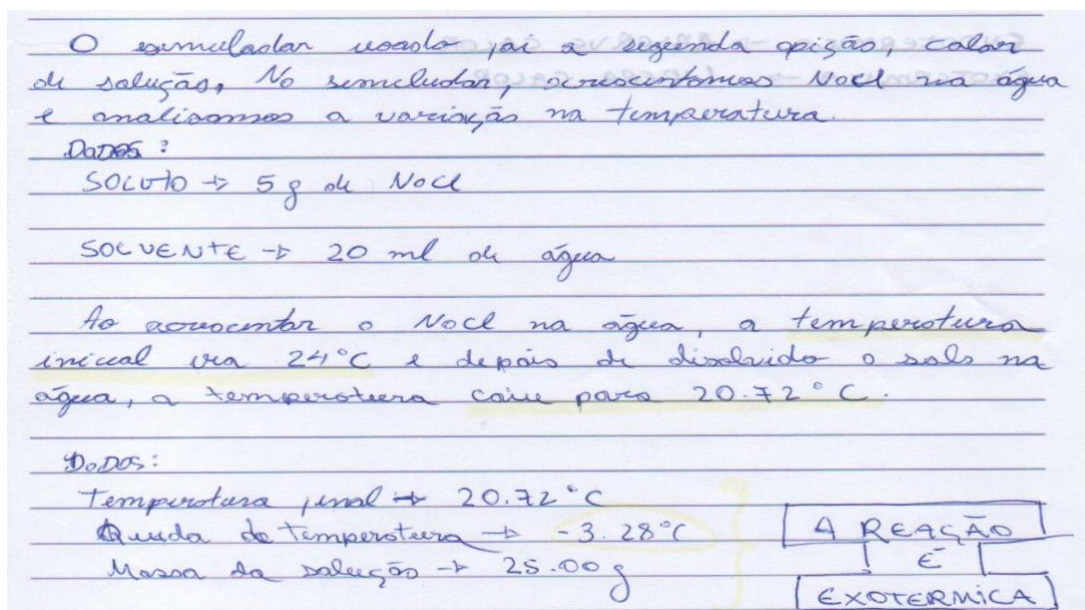 O simulador usado foi a segunda opição, calor
de solução, No simulador, acrescentamos Nacl na água
e analisamos a variação na temperatura.
Dados :
SOLUTO → 5 g de Nacl
SOLVENTE → 20 ml de água
Ao acrescentar o Nacl na água, a temperatura
inicial era 24°C e depois de disolvido o sals na
água, a temperatura caiu para 20.72°C.
Dados:
Temperatura final → 20.72°C
Queda de Temperatura → -3.28°C
Massa da solução → 25.00g
A REAÇÃO
É
EXOTERMICA